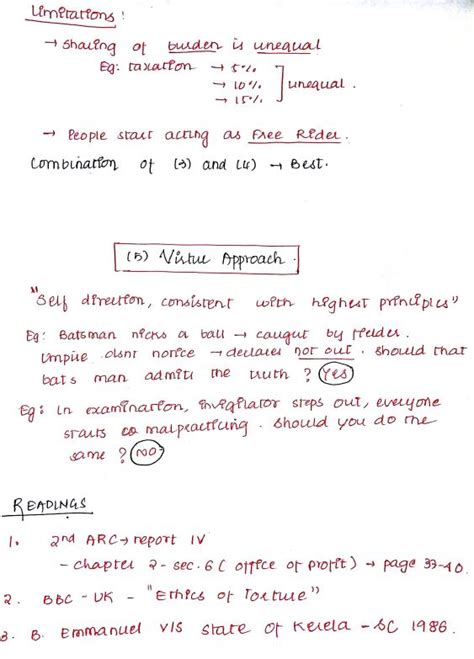 Limitations:
→ Sharing of burden is unequal
Eg: taxation → 5%
→ 10%
→ 15%
unequal.
→ People start acting as Free Rider.
Combination of (3) and (4) → Best.
(5) Virtue Approach.
"Self direction, consistent with highest principles"
Eg: Batsman nicks a ball → caught by fielder.
Umpire doesnt notice → declares not out. should that
bats man admit the truth? Yes
Eg: In examination, invigilator steps out, everyone
starts malpractising. Should you do the
same? NO
READINGS
1. 2nd ARC → report IV
- chapter 2 - sec. 6 (office of profit) → page 39-40.
2. BBC - UK - "Ethics of Torture"
3. B. Emmanuel V/S State of Kerela - SC 1986.